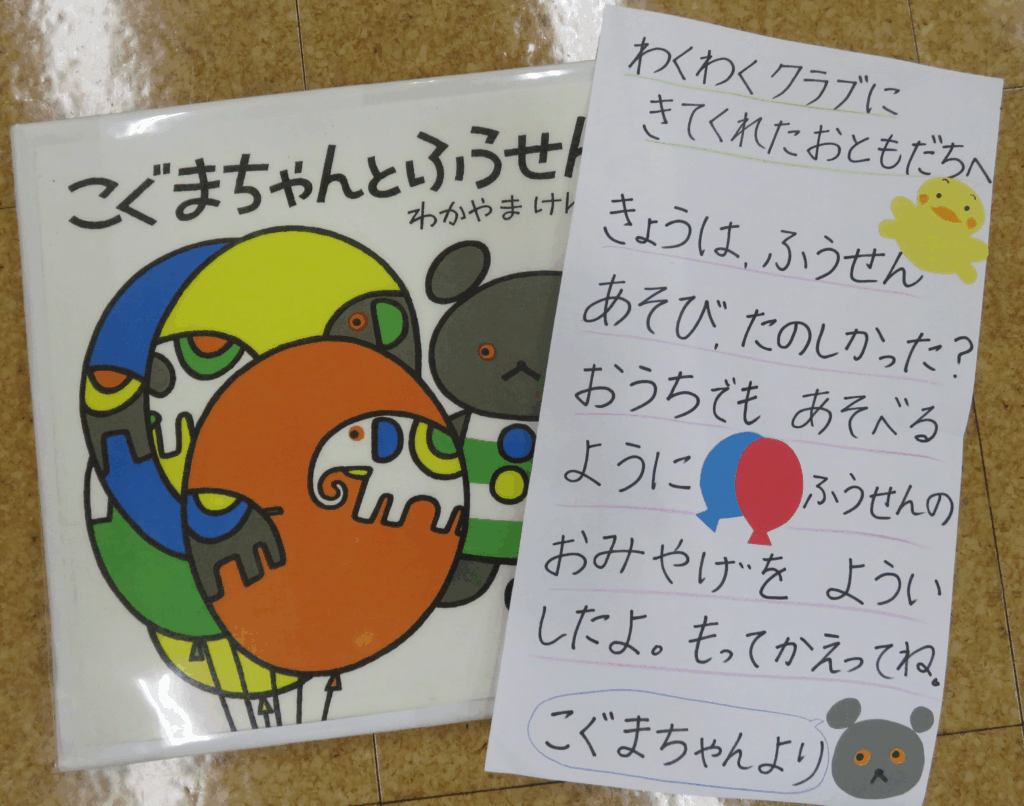 こぐまちゃんとふうせん
わかやま けん
わくわくクラブに
きてくれたおともだちへ
きょうは、ふうせん
あそび、たのしかった?
おうちでも あそべる
ように ふうせんの
おみやげを ようい
したよ。もってかえってね。
こぐまちゃんより